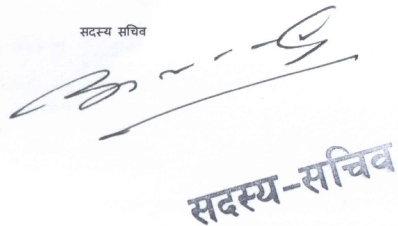 सदस्य सचिव
सदस्य-सचिव